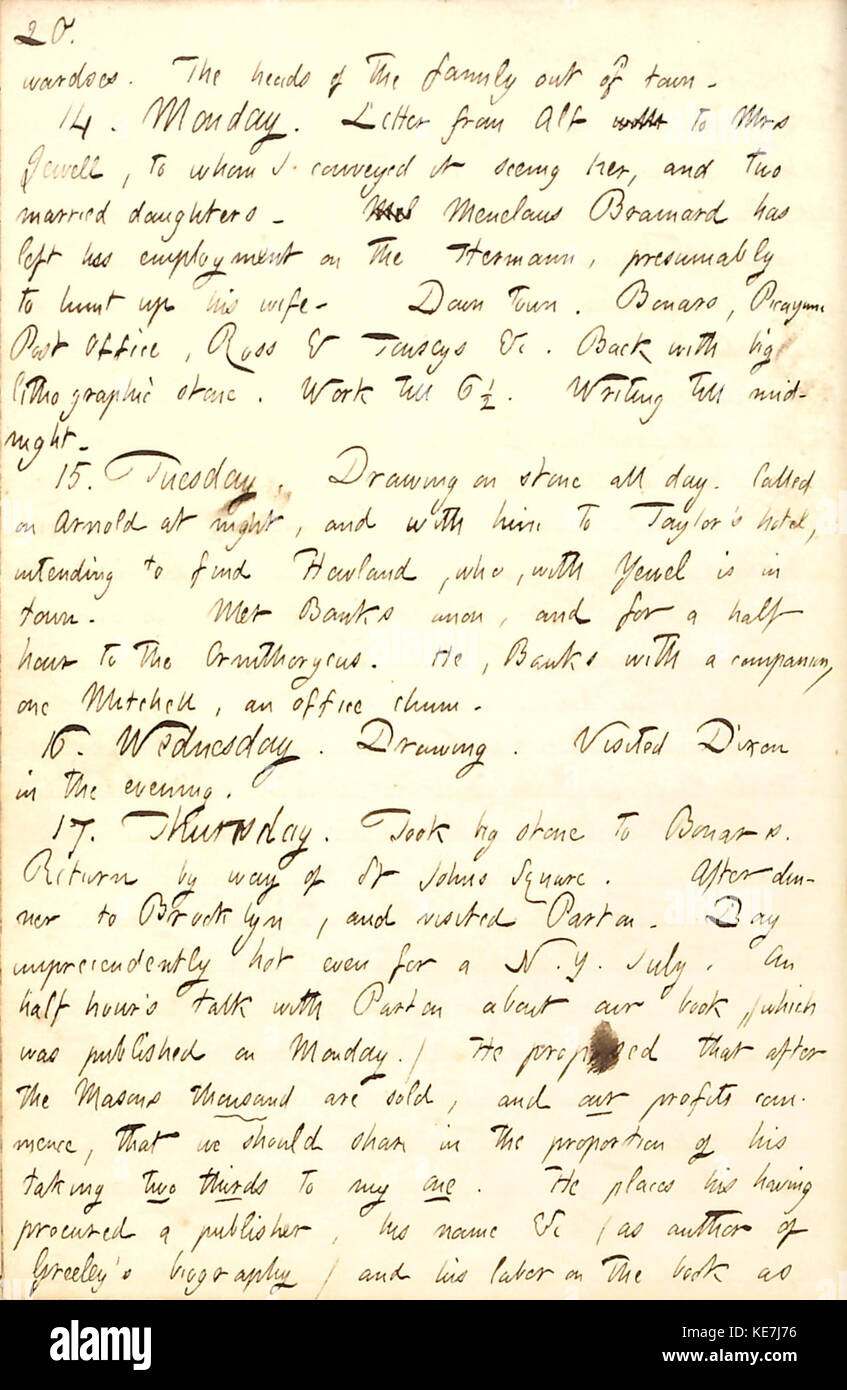 20.
wardses. The heads of the family out of town -
14. Monday. Letter from Alf with to Mrs
Jewell, to whom I conveyed it seeing her, and two
married daughters - Mel Menelaus Brainard has
left his employment on the Hermann, presumably
to hunt up his wife - Down town. Bonars, Picayune
Post Office, Ross & Touseys &c. Back with big
lithographic stone. Work till 6 ½. Writing till mid-
night -
15. Tuesday. Drawing on stone all day. Called
on Arnold at night, and with him to Taylor's hotel,
intending to find Howland, who, with Yewel is in
town. Met Banks anon, and for a half
hour to the Ornithorycus. He, Banks with a companion,
one Mitchell, an office chum -
16. Wednesday. Drawing. Visited Dixon
in the evening.
17. Thursday. Took big stone to Bonars.
Return by way of St Johns Square. After din-
ner to Brooklyn, and visited Parton - Day
imprecendently hot even for a N. Y. July. An
half hour's talk with Parton about our book, (which
was published on Monday.) He proposed that after
the Masons thousand are sold, and our profits com-
mence, that we should share in the proportion of his
taking two thirds to my one. He places his having
procured a publisher, his name &c (as author of
Greeley's biography) and his labor on the book as
alamy
Image ID: KE7J76
www.alamy.com